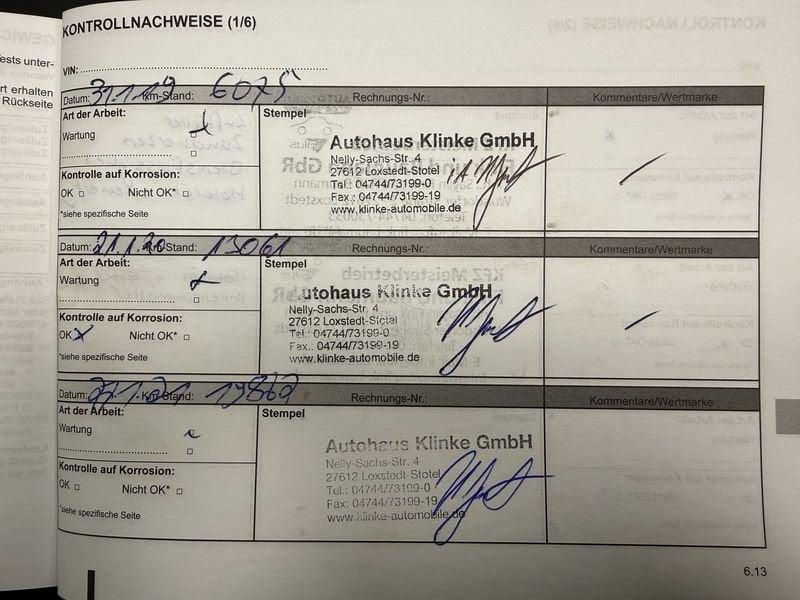 KONTROLLNACHWEISE (1/6)
VIN:
Datum: 31.1.19 Km-Stand: 6075 Rechnungs-Nr.: Kommentare/Wertmarke
Art der Arbeit: Stempel
Wartung
Autohaus Klinke GmbH
Nelly-Sachs-Str. 4
27612 Loxstedt-Stotel
Tel.: 04744/73199-0
Fax.: 04744/73199-19
www.klinke-automobile.de
i.A.
Kontrolle auf Korrosion:
OK Nicht OK*
*siehe spezifische Seite
Datum: 21.1.20 Km-Stand: 13061 Rechnungs-Nr.: Kommentare/Wertmarke
Art der Arbeit: Stempel
Wartung
utohaus Klinke GmbH
Nelly-Sachs-Str. 4
27612 Loxstedt-Stotel
Tel.: 04744/73199-0
Fax.: 04744/73199-19
www.klinke-automobile.de
Kontrolle auf Korrosion:
OK X Nicht OK*
*siehe spezifische Seite
Datum: Km-Stand: 19862 Rechnungs-Nr.: Kommentare/Wertmarke
Art der Arbeit: Stempel
Wartung
Autohaus Klinke GmbH
Nelly-Sachs-Str. 4
27612 Loxstedt-Stotel
Tel.: 04744/73199-0
Fax: 04744/73199-19
www.klinke-automobile.de
Kontrolle auf Korrosion:
OK Nicht OK*
*siehe spezifische Seite
6.13
ests unter-
rt erhalten
Rückseite